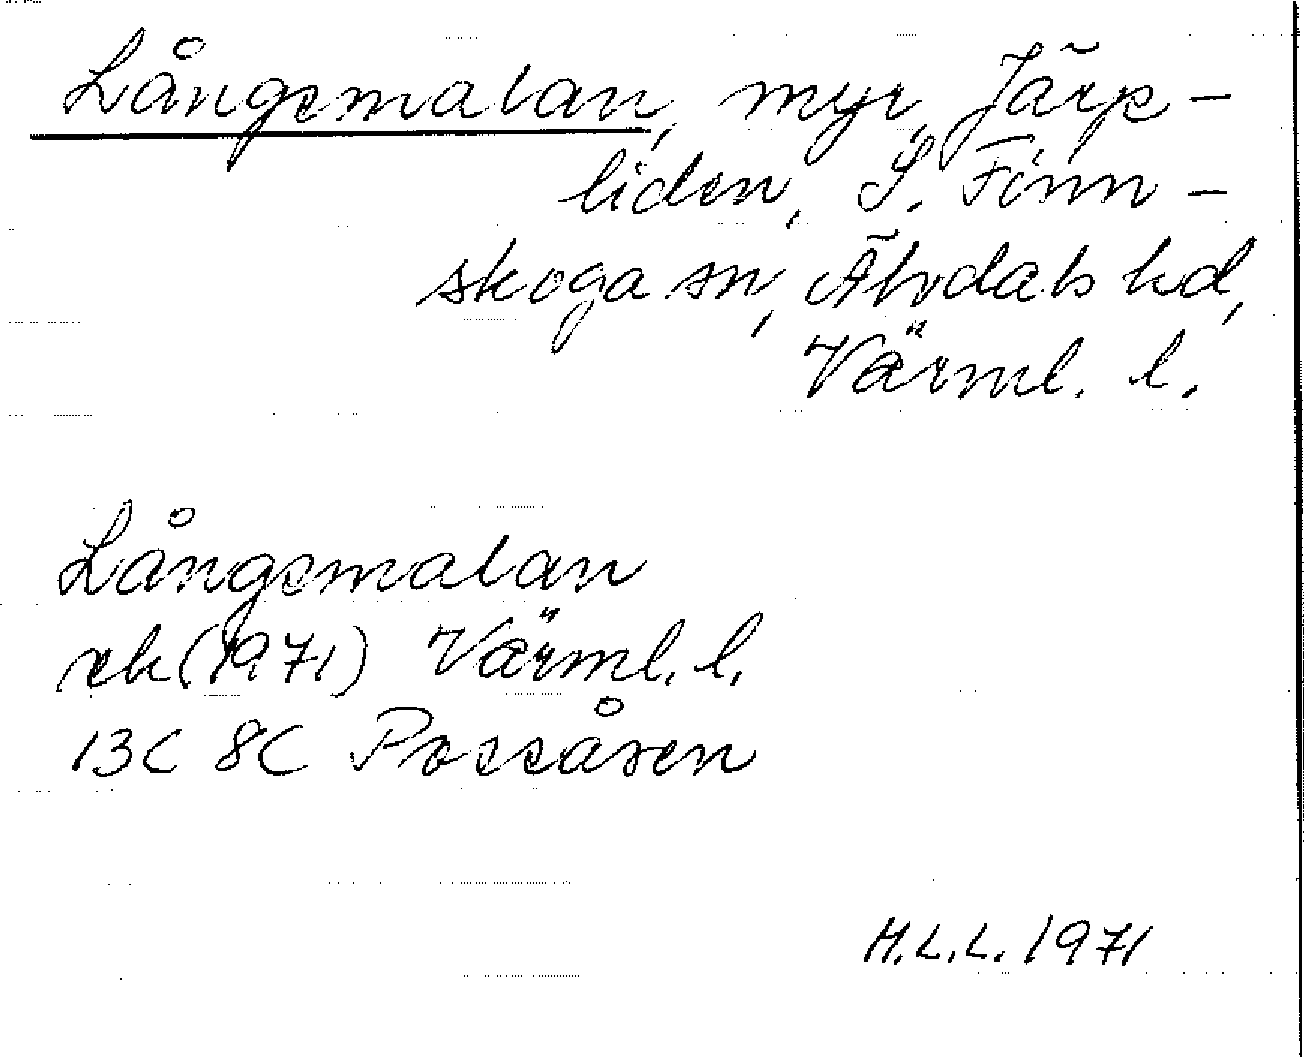 Långsmalan, myr, Järp-
liden, S. Finn-
skoga sn, Älvdals hd,
Värml. l.
Långsmalan
rk (1971) Värml. l.
13C 8C Possåsen
H.L.L. 1971